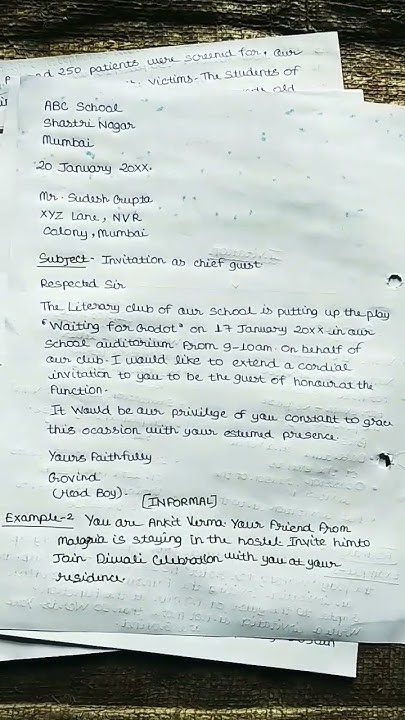 and 250 patients were screend for. Our
victims. The students of
old
ABC School
Shastri Nagar
Mumbai
20 January 20xx.
Mr. Sudesh Gupta
XYZ Lane, NVR
Colony, Mumbai
Subject- Invitation as chief guist
Respected Sir
The Literary club of our school is putting up the play
"Waiting for Godot" on 17 January 20xx in our
school auditorium from 9-10am. On behalf of
our club. I would like to extend a cordial
invitation to you to be the guest of honour at the
function.
It would be our privilige of you constant to grace
this ocassion with your estumed presence.
Yours Faithfully
Govind
(Head Boy).
[INFORMAL]
Example-2 You are Ankit Verma. Your friend from
is staying in the hostel. Invite him to
Join Diwali Celebration with you at your
residence.